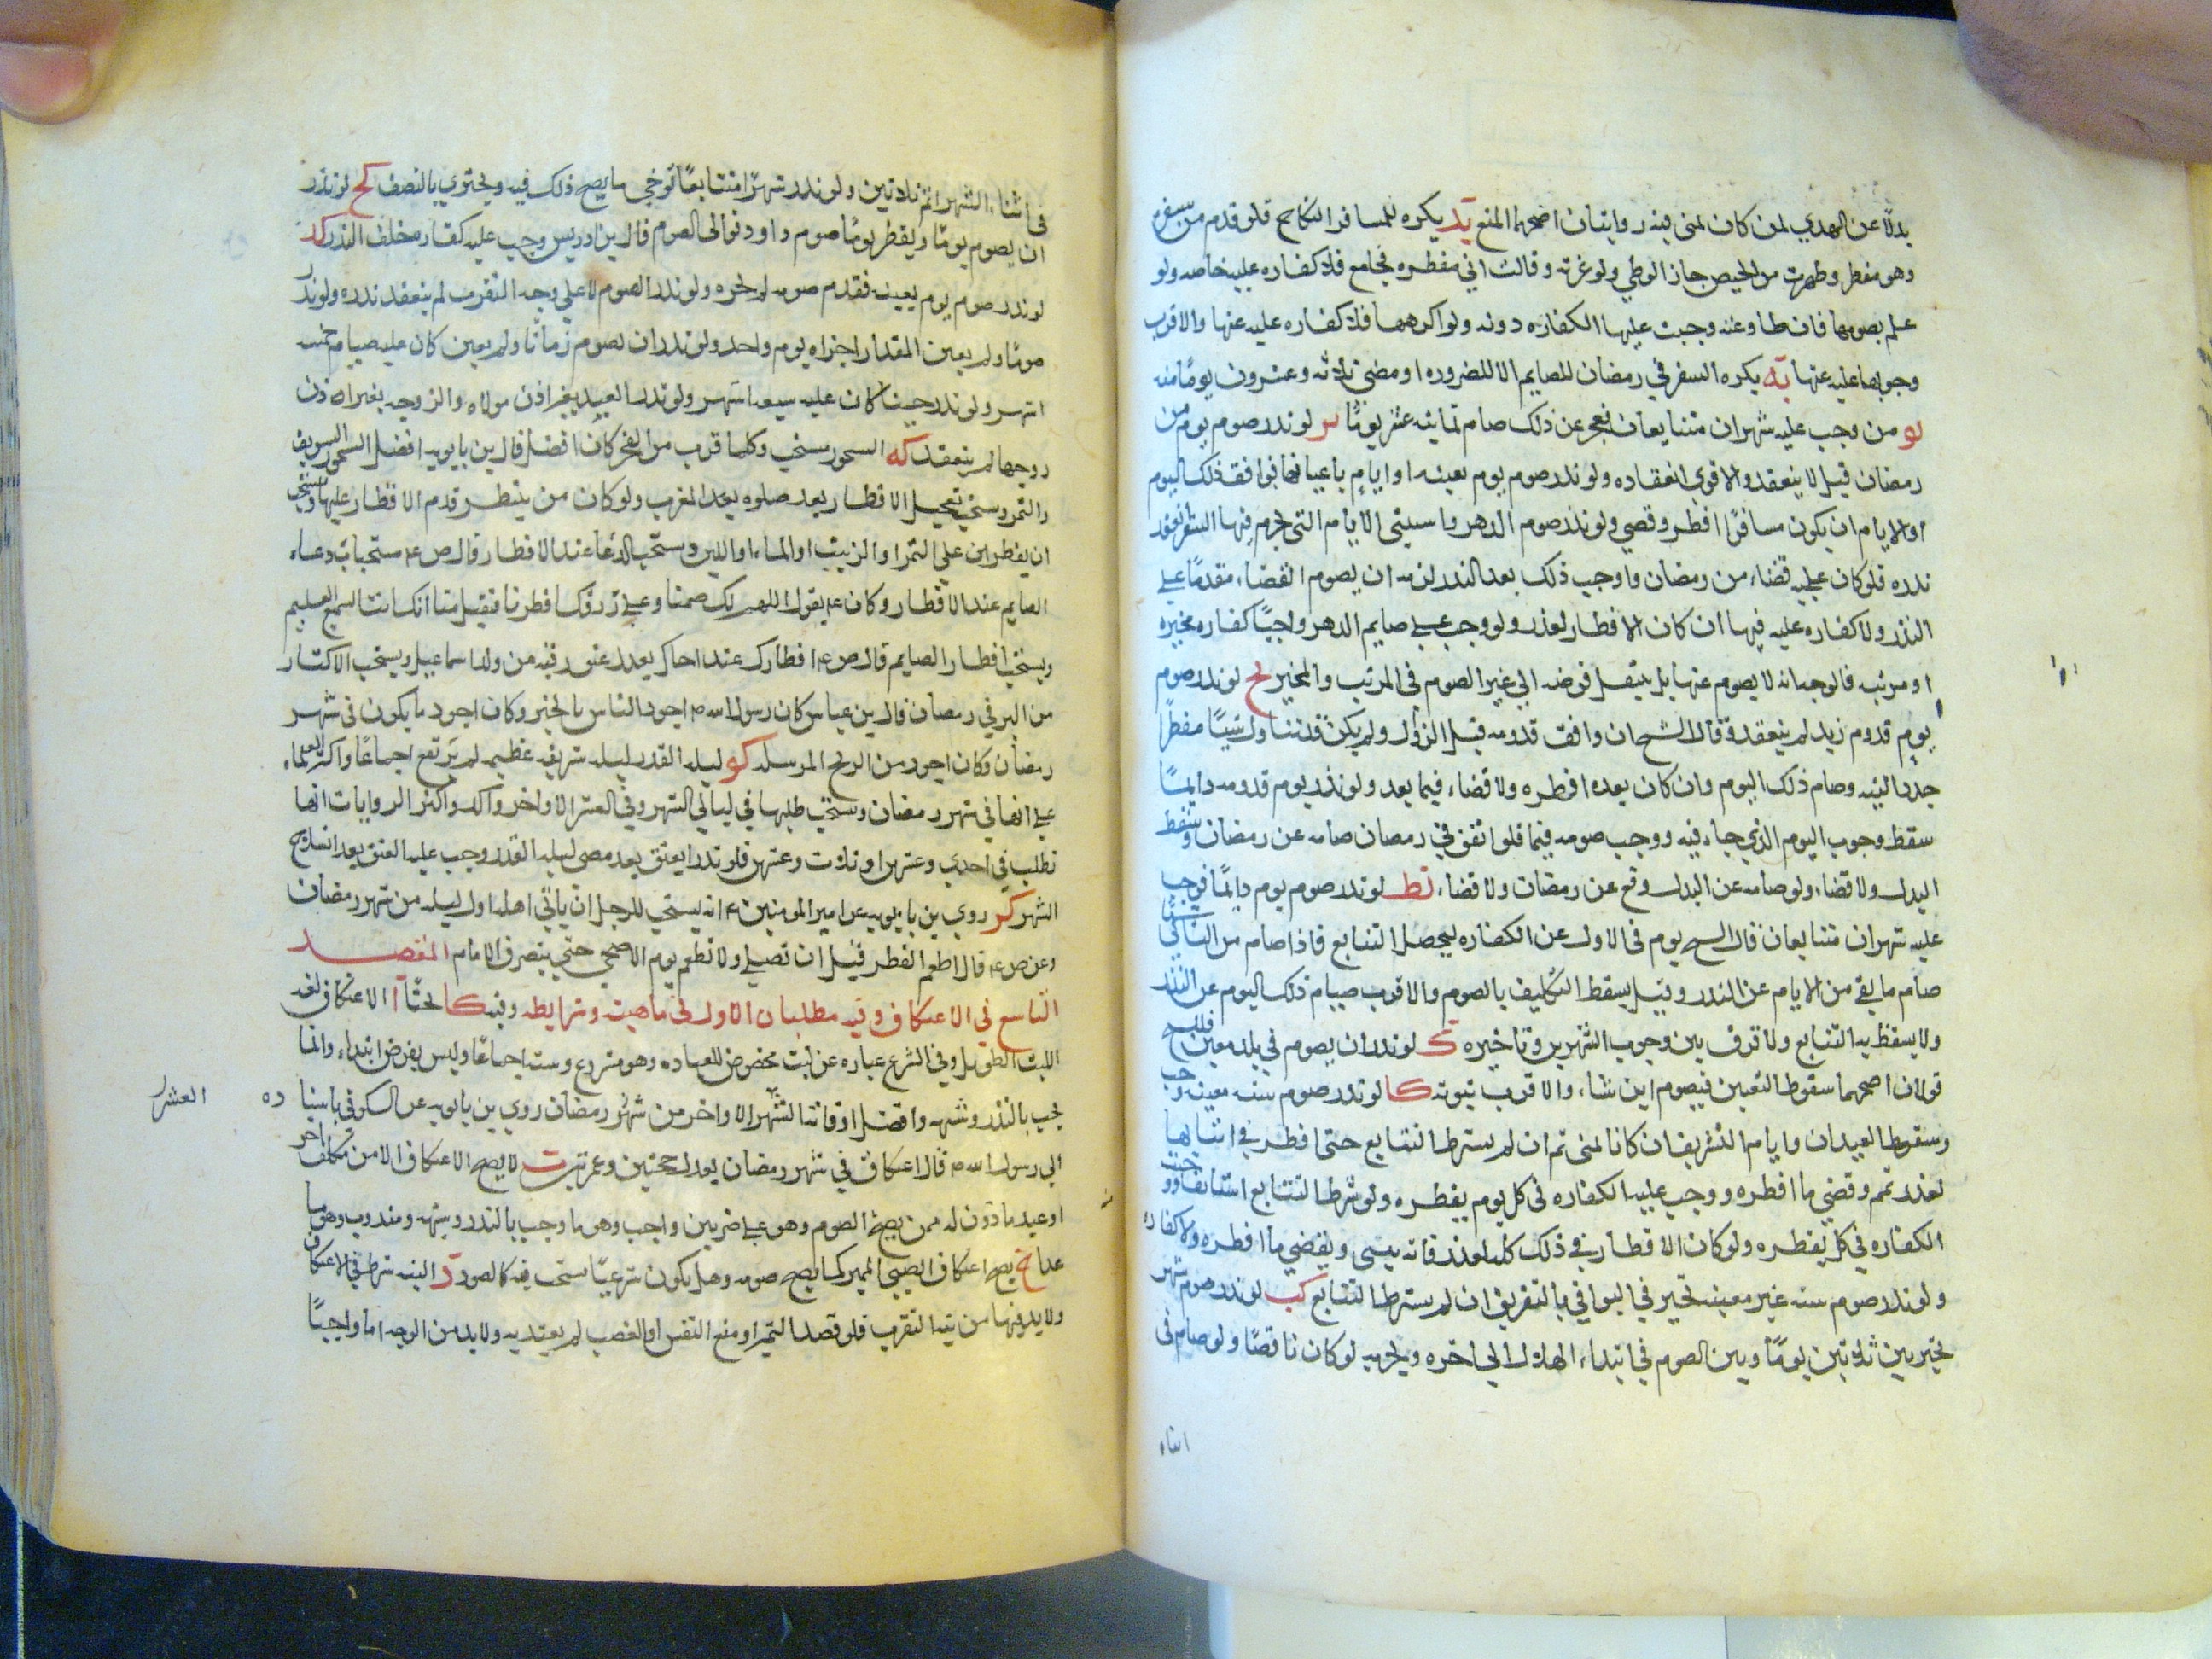 بدلا عن الهدي لمن كان بمنى فيه روايتان اصحهما المنع يد يكره للمسافر النكاح فلو قدم من سفره
وهو مفطر وطهرت من الحيض جاز الوطي ولو غرته وقالت اني مفطره فجامع فلا كفاره عليه خاصه ولو
علم بصومها فان طاوعته وجبت عليها الكفاره دونه ولو اكرهها فلا كفاره عليه عنها والاقرب
وجوبها عليه عنها يه يكره السفر في رمضان للصايم الا للضروره او مضي ثلاثه وعشرون يوما منه
يو من وجب عليه شهران متتابعان فعجز عن ذلك صام ثمانيه عشر يوما يز لو نذر صوم يوم من
رمضان قيل لا ينعقد والاقوي انعقاده ولو نذر صوم يوم بعينه او ايام باعيانها فوافق ذلك اليوم
او الايام ان يكون مسافرا افطر وقضي ولو نذر صوم الدهر واستثني الايام التي يحرم فيها السفر انعقد
نذره فلو كان عليه قضاء من رمضان واوجب ذلك بعد النذر لزمه ان يصوم القضاء مقدما علي
النذر ولا كفاره عليه فيها ان كان الافطار لعذر ولو وجب علي صايم الدهر واجبا كفاره مخيره
او مرتبه فالوجه انه لا يصوم عنها بل ينتقل فرضه الي غير الصوم في المرتب والمخير يح لو نذر صوم
يوم قدوم زيد لم ينعقد وقال الشيخ ان وافق قدومه قبل الزوال ولم يكن قد تناول شيئا مفطرا
جدد النيه وصام ذلك اليوم وان كان بعده افطره ولا قضاء فيما بعد ولو نذر يوم قدومه دايما
سقط وجوب اليوم الذي جاء فيه ووجب صومه فيما فلو اتفق في رمضان صامه عن رمضان وسقط
البدل ولا قضاء ولو صامه عن البدل وقع عن رمضان ولا قضاء يط لو نذر صوم يوم دايما فوجب
عليه شهران متتابعان قال الشيخ يوم في الاول عن الكفاره ليحصل التتابع فاذا صام من الثاني شيئا
صام ما بقي من الايام عن النذر وقيل يسقط التكليف بالصوم والاقرب صيام ذلك اليوم عن النذر
ولا يسقط به التتابع ولا فرق بين وجوب الشهرين وتاخيره ك لو نذر ان يصوم في بلد معين فللشيخ
قولان اصحهما سقوط التعيين فيصوم اين شاء والاقرب ثبوته كا لو نذر صوم سنه معينه وجب
وسقوط العيدان وايام التشريق ان كان بمنى ثم ان لم يشترط التتابع حتى افطر في اثنايها
لعذر تمم وقضي ما افطره ووجب عليه الكفاره في كل يوم يفطره ولو شرط التتابع استانف ووجبت
الكفاره في كل يفطره ولو كان الافطار في ذلك كله لعذر فانه يبني ويقضي ما افطره ولا كفاره
ولو نذر صوم سنه غير معينه تخير في البواقي بالتفريق ان لم يشترط التتابع كب لو نذر صوم شهر
تخير بين ثلاثين يوما وبين الصوم في ابتداء الهلال الي اخره ويلزمه لو كان ناقصا ولو صام في
اثناء
في اثناء الشهر اتم ثلاثين ولو نذر شهرا متتابعا توخي ما يصح ذلك فيه ويجتزي بالنصف كج لو نذر
ان يصوم يوما ويفطر يوما صوم داود فوالي الصوم قال بن ادريس وجب عليه كفاره خلف النذر كد
لو نذر صوم يوم بعينه فقدم صومه لم يجزه ولو نذر الصوم لا علي وجه التقرب لم ينعقد نذره ولو نذر
صوما ولم يعين المقدار اجزاه يوم واحد ولو نذر ان يصوم زمانا ولم يعين كان عليه صيام خمسه
اشهر ولو نذر حينا كان عليه سته اشهر ولو نذر العبد بغير اذن مولاه والزوجه بغير اذن
زوجها لم ينعقد كه السحور مستحب وكلما قرب من الفجر كان افضل قال بن بابويه افضل السحور السويق
والتمر ويستحب تعجيل الافطار بعد صلوه بعد المغرب ولو كان من ينتظر قدم الافطار عليها ويستحب
ان يفطر بن علي التمر او الزبيب او الماء او اللبن ويستحب الدعا عند الافطار قال ص ع مستجاب دعاء
الصايم عند الافطار وكان ع يقول اللهم لك صمنا وعلى رزقك افطرنا فتقبل منا انك انت السميع العليم
ويستحب افطار الصايم قال ص ع افطارك عند اخاك يعدل عتق رقبه من ولد اسماعيل ويستحب الاكثار
من البر في رمضان قال بن عباس كان رسول الله ص اجود الناس بالخير وكان اجود ما يكون في شهر
رمضان وكان اجود من الريح المرسله كو ليله القدر ليله شريفه عظيمه لم ترتفع اجماعا واكثر العلماء
علي انها في شهر رمضان ويستحب طلبها في ليالي الشهر وفي العشر الاواخر واكد واكثر الروايات انها
تطلب في احدي وعشرين او ثلاث وعشرين فلو نذر ايعتق بعد مضي ليله القدر وجب عليه العتق بعد انسلاخ
الشهر كز روي بن بابويه عن امير المومنين ع انه يستحب للرجل ان ياتي اهله اول ليله من شهر رمضان
وعن ص ع قال اطعم الفطر قبل ان تصلي ولا تطعم يوم الاضحي حتي ينصرف الامام المقصد
التاسع في الاعتكاف وفيه مطلبان الاول في ماهيته وشرايطه وفيه كا بحثا ا الاعتكاف لغه
اللبث الطويل وفي الشرع عباره عن لبث مخصوص للعباده وهو مشروع وسنه اجماعا وليس بفرض ابتداء وانما
يجب بالنذر وشبهه وافضل اوقاته الشهر الاواخر من شهر رمضان روي بن بابويه عن السكوني باسناده العشر
الي رسول الله ص قال اعتكاف في شهر رمضان يعدل حجتين وعمرتين ب لا يصح الاعتكاف الا من مكلف حر
او عبد ماذون له ممن يصح الصوم وهو علي ضربين واجب وهو ما وجب بالنذر وشبهه ومندوب وهو ما
عدا ج يصح اعتكاف الصبي المميز كما يصح صومه وهل يكون شرعيا يستحب فيه كالصوم د النيه شرط في الاعتكاف
ولا بد فيها من نيه التقرب فلو قصد التحيز او منع النفس او الغضب لم يعتد به ولا بد من الوجه اما واجبا